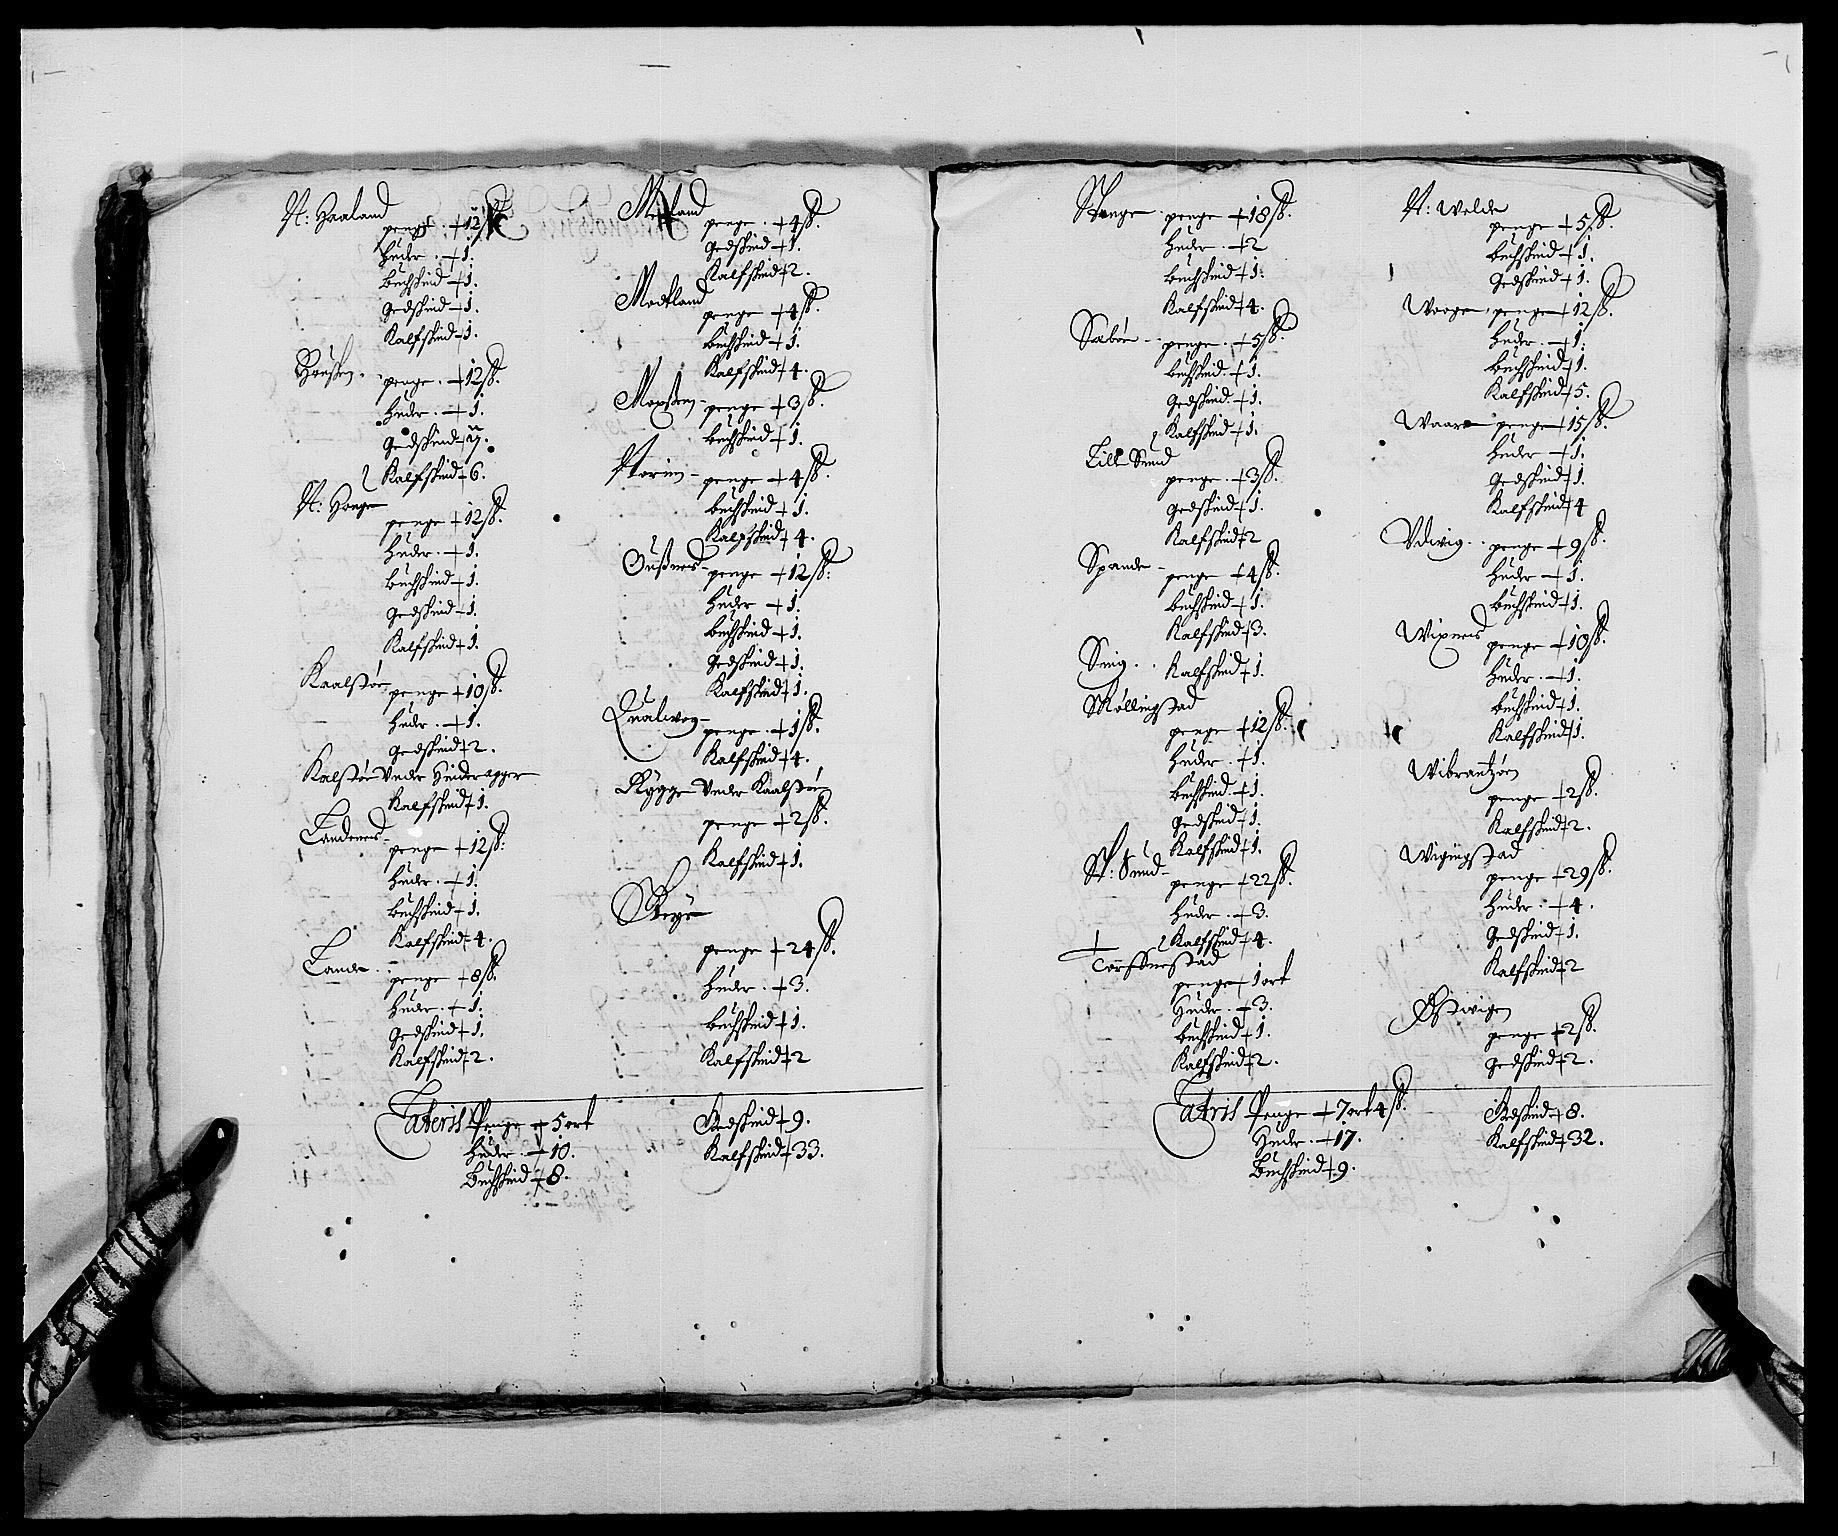 N: Haaland
penge +12 ß.
Huder +1.
Buchskind +1.
Gedskind +1.
Kalfskind +1.
Housken penge +12 ß.
Huder +1.
Gedskind
Kalfskind +6.
N: Houge
penge +12 ß.
Huder +1.
Buchskind +1.
Gedskind +1.
Kalfskind +1.
Kaalstøe penge +10 ß.
Huder +1.
Gedskind +2.
Kalstøe Under
Kalfskind +1.
Landenes
penge +12 ß.
Huder +1.
Buchskind +1.
Kalfskind +4.
Lande
penge +8 ß.
Huder +1.
Gedskind +1.
Kalfskind +2.
Meeland
penge +4 ß.
Gedskind +1.
Kalfskind +2.
Medland
penge +4 ß.
Buchskind +1.
Kalfskind +4.
penge +3 ß.
Buchskind +1.
penge +4 ß.
Buchskind +1.
Kalfskind +4.
Gußnes penge +12 ß.
Huder +1.
Buchskind +1.
Gedskind +1.
Kalfskind +1.
Qualweg penge +1 ß.
Kalfskind +4.
Rygge Under Kaalstøe
penge +2 ß.
Kalfskind +1.
Skeye
penge +24 ß.
Huder +3.
Buchskind +1.
Kalfskind +2
Lateris Penge +5 ort
Huder +10.
Buchskind +8.
Gedskind +9.
Kalfskind +33.
Stange penge +18 ß.
Huder +2
Buchskind +1.
Kalfskind +4.
Sæbøe penge +5 ß.
Buchskind +1.
Gedskind +1.
Kalfskind +1.
Lille Sund
penge +3 ß.
Gedskind +1.
Kalfskind +2
Spande
penge +4 ß.
Buchskind +1.
Kalfskind +3.
Snig Kalfskind +1.
Skøllingstad
penge +12 ß.
Huder +1.
Buchskind +1.
Gedskind +1.
Kalfskind +1.
St: Sund
penge +22 ß.
Huder +3.
Kalfskind +4.
Torffuestad
penge 1 ort
Huder +3.
Buchskind +1.
Kalfskind +2.
N: Welde
penge +5 ß.
Buchskind +1.
Gedskind +1.
Woogen penge +12 ß.
Huder +1.
Buchskind +1.
Kalfskind +5.
Waare penge +15 ß.
Huder +1.
Gedskind +1.
Kalfskind +4
Udvig penge +9 ß.
Huder +1.
Buchskind +1.
Wixnes
penge +10 ß.
Huder +1.
Buchskind +1.
Kalfskind +1.
Wibrantzøen
penge +2 ß.
Kalfskind +2.
Wigingstad
penge +29 ß.
Huder +4.
Gedskind +1.
Kalfskind +2
Østwigen
penge +2 ß.
Gedskind +2.
Latris Penge +7 ort 4 ß.
Huder +17.
Buchskind +9.
Gedskind +8.
Kalfskind +32.